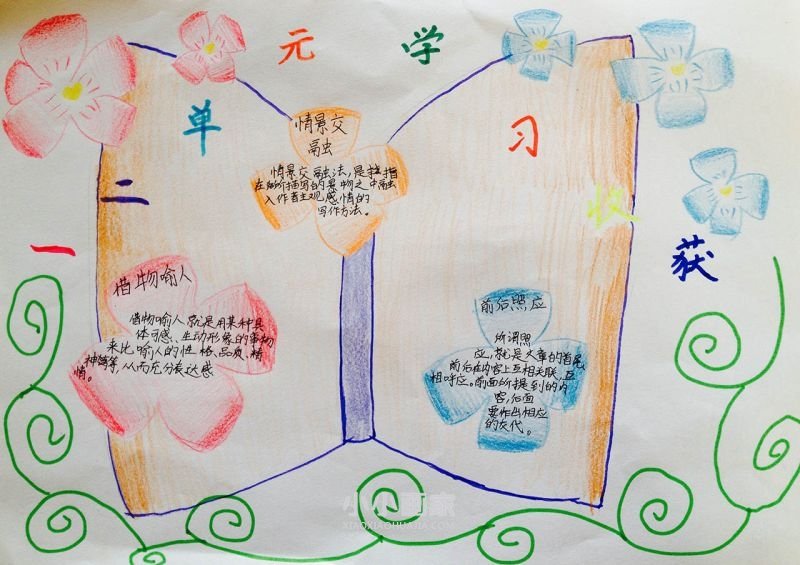 一二单元学习收获
情景交
融虫
情景交融法，是指
在所描写的景物之中融
入作者主观感情的
写作方法。
借物喻人
借物喻人就是用某种具
体可感、生动形象的事物
来比喻人的性格、品质、精
神等等，从而充分表达感
情。
前后照应
所谓照
应，就是文章的首尾、
前后在内容上互相关联，互
相呼应。前面所提到的内
容，后面
要作出相应
的交代。
小小画家
XIAOXIAOHUAJIA.COM